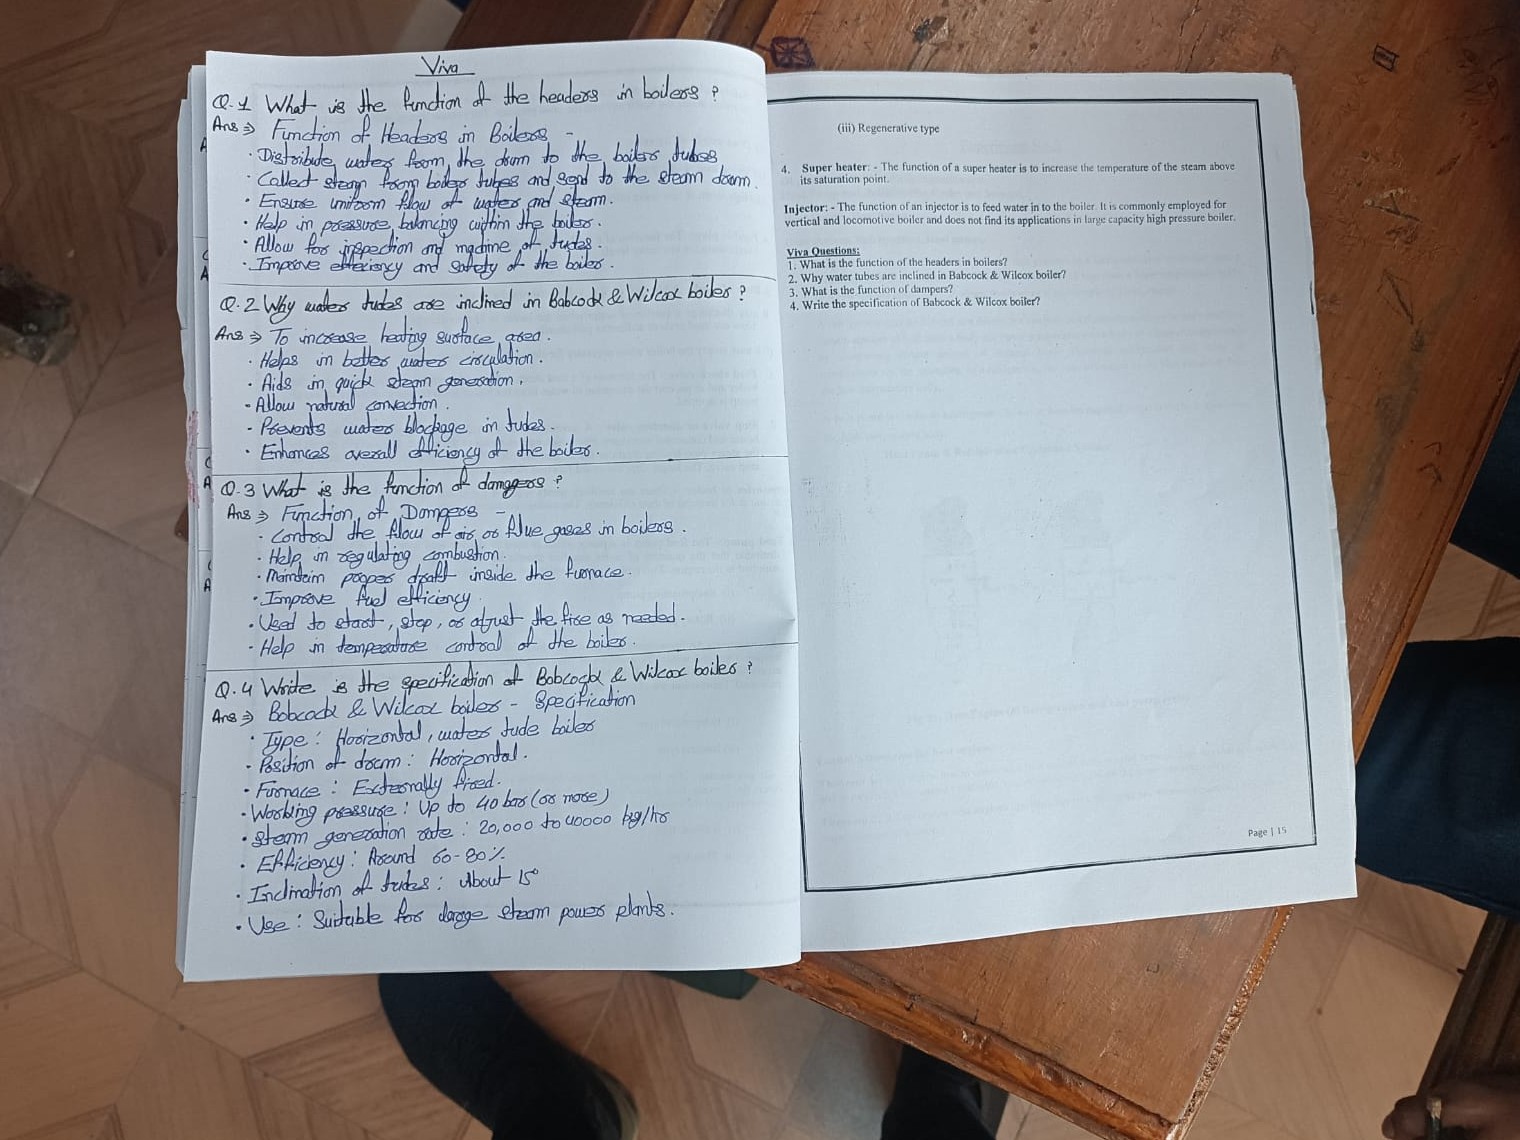 Viva
Q.1 What is the function of the headers in boilers ?
Ans ⇒ Function of Headers in Boilers -
· Distribute water from the drum to the boiler tubes
· Collect steam from boiler tubes and send to the steam drum.
· Ensure uniform flow of water and steam.
· Help in pressure balancing within the boiler.
· Allow for inspection and machine of tubes.
· Improve efficiency and safety of the boiler.
Q.2 Why water tubes are inclined in Babcock & Wilcox boiler ?
Ans ⇒ To increase heating surface area.
· Helps in better water circulation.
· Aids in quick steam generation.
· Allow natural convection.
· Prevents water blockage in tubes.
· Enhances overall efficiency of the boiler.
Q.3 What is the function of dampers ?
Ans ⇒ Function of Dampers -
· Control the flow of air or flue gases in boilers.
· Help in regulating combustion.
· Maintain proper draft inside the furnace.
· Improve fuel efficiency.
· Used to start, stop, or adjust the fire as needed.
· Help in temperature control of the boiler.
Q.4 Write is the specification of Babcock & Wilcox boiler ?
Ans ⇒ Bobcock & Wilcox boiler - Specification
· Type : Horizontal, water tube boiler
· Position of drum : Horizontal.
· Furnace : Externally fired.
· Working pressure : Up to 40 bar (or more)
· Steam generation rate : 20,000 to 40000 kg/hr
· Efficiency : Around 60-80%
· Inclination of tubes : About 15°
· Use : Suitable for large steam power plants.
(iii) Regenerative type
4. Super heater: - The function of a super heater is to increase the temperature of the steam above
its saturation point.
Injector: - The function of an injector is to feed water in to the boiler. It is commonly employed for
vertical and locomotive boiler and does not find its applications in large capacity high pressure boiler.
Viva Questions:
1. What is the function of the headers in boilers?
2. Why water tubes are inclined in Babcock & Wilcox boiler?
3. What is the function of dampers?
4. Write the specification of Babcock & Wilcox boiler?
Page | 15